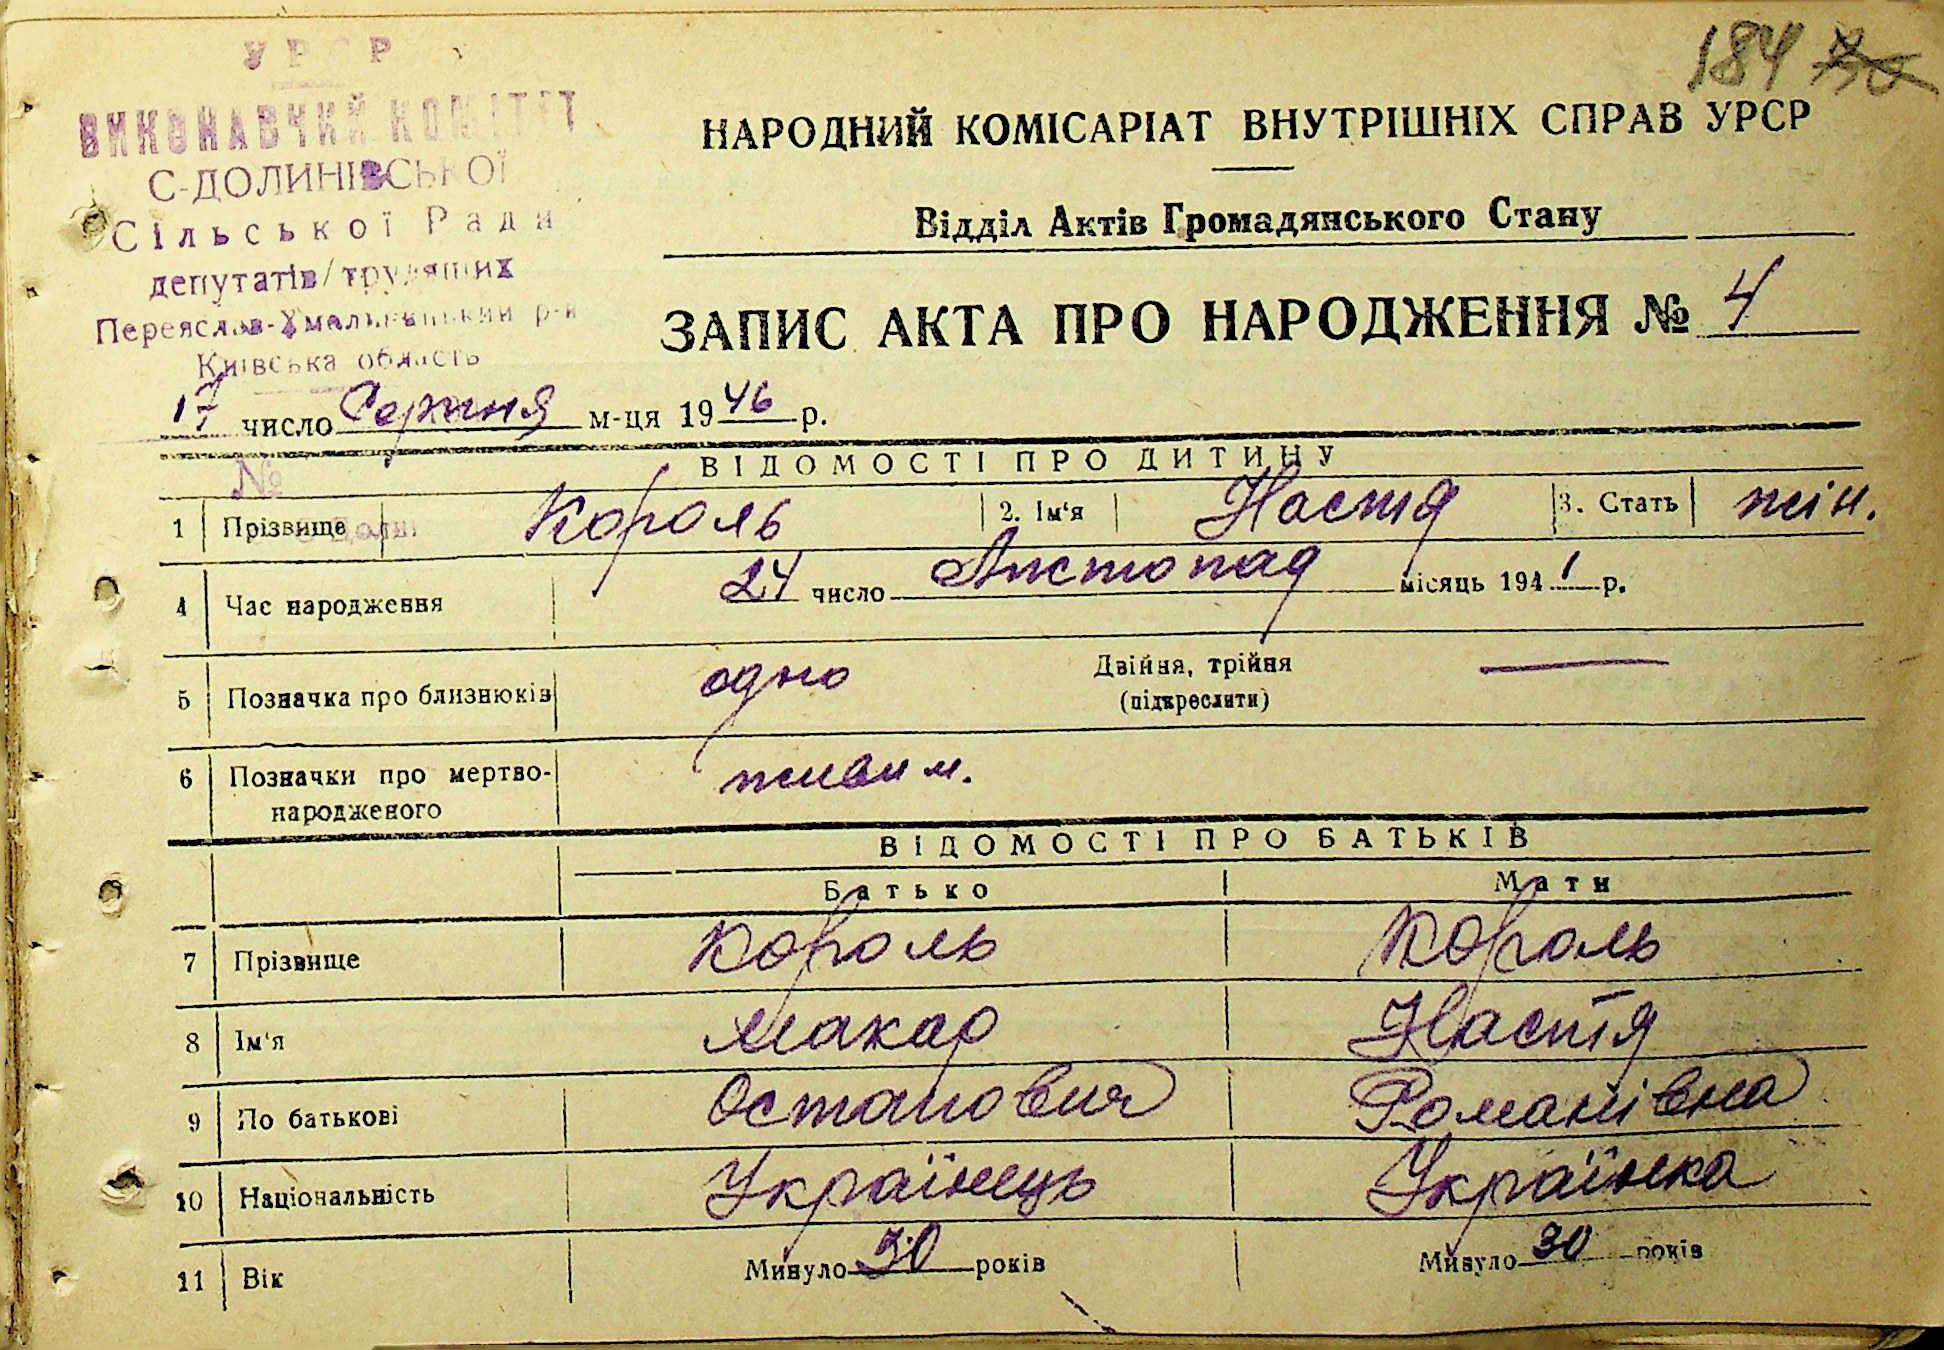 184
УРСР
ВИКОНАВЧИЙ КОМІТЕТ
С-ДОЛИНІВСЬКОЇ
Сільської Ради
депутатів трудящих
Переяслав-Хмельницький р-н
Київська область
НАРОДНИЙ КОМІСАРІАТ ВНУТРІШНІХ СПРАВ УРСР
Відділ Актів Громадянського Стану
ЗАПИС АКТА ПРО НАРОДЖЕННЯ № 4
17 число Серпня м-ця 1946 р.
№
ВІДОМОСТІ ПРО ДИТИНУ
1 Прізвище Король 2. Ім'я Настя 3. Стать жін.
4 Час народження 24 число Листопад місяць 1941 р.
5 Позначка про близнюків одно Двійня, трійня
(підкреслити)
6 Позначки про мертво-
народженого живим.
ВІДОМОСТІ ПРО БАТЬКІВ
Батько Мати
7 Прізвище Король Король
8 Ім'я Макар Настя
9 По батькові Остапович Романівна
10 Національність Українець Українка
11 Вік Минуло 30 років Минуло 30 років